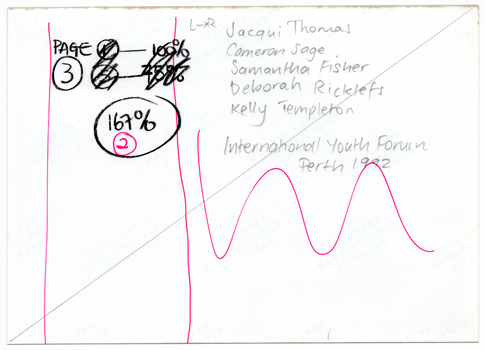 PAGE 1 — 100%
3
167%
2
L→R Jacqui Thomas
Cameron Sage
Samantha Fisher
Deborah Ricklefs
Kelly Templeton
International Youth Forum
Perth 1992